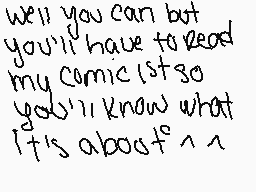 well you can but
you'll have to read
my comic 1st so
you'll know what
it's about ^ ^